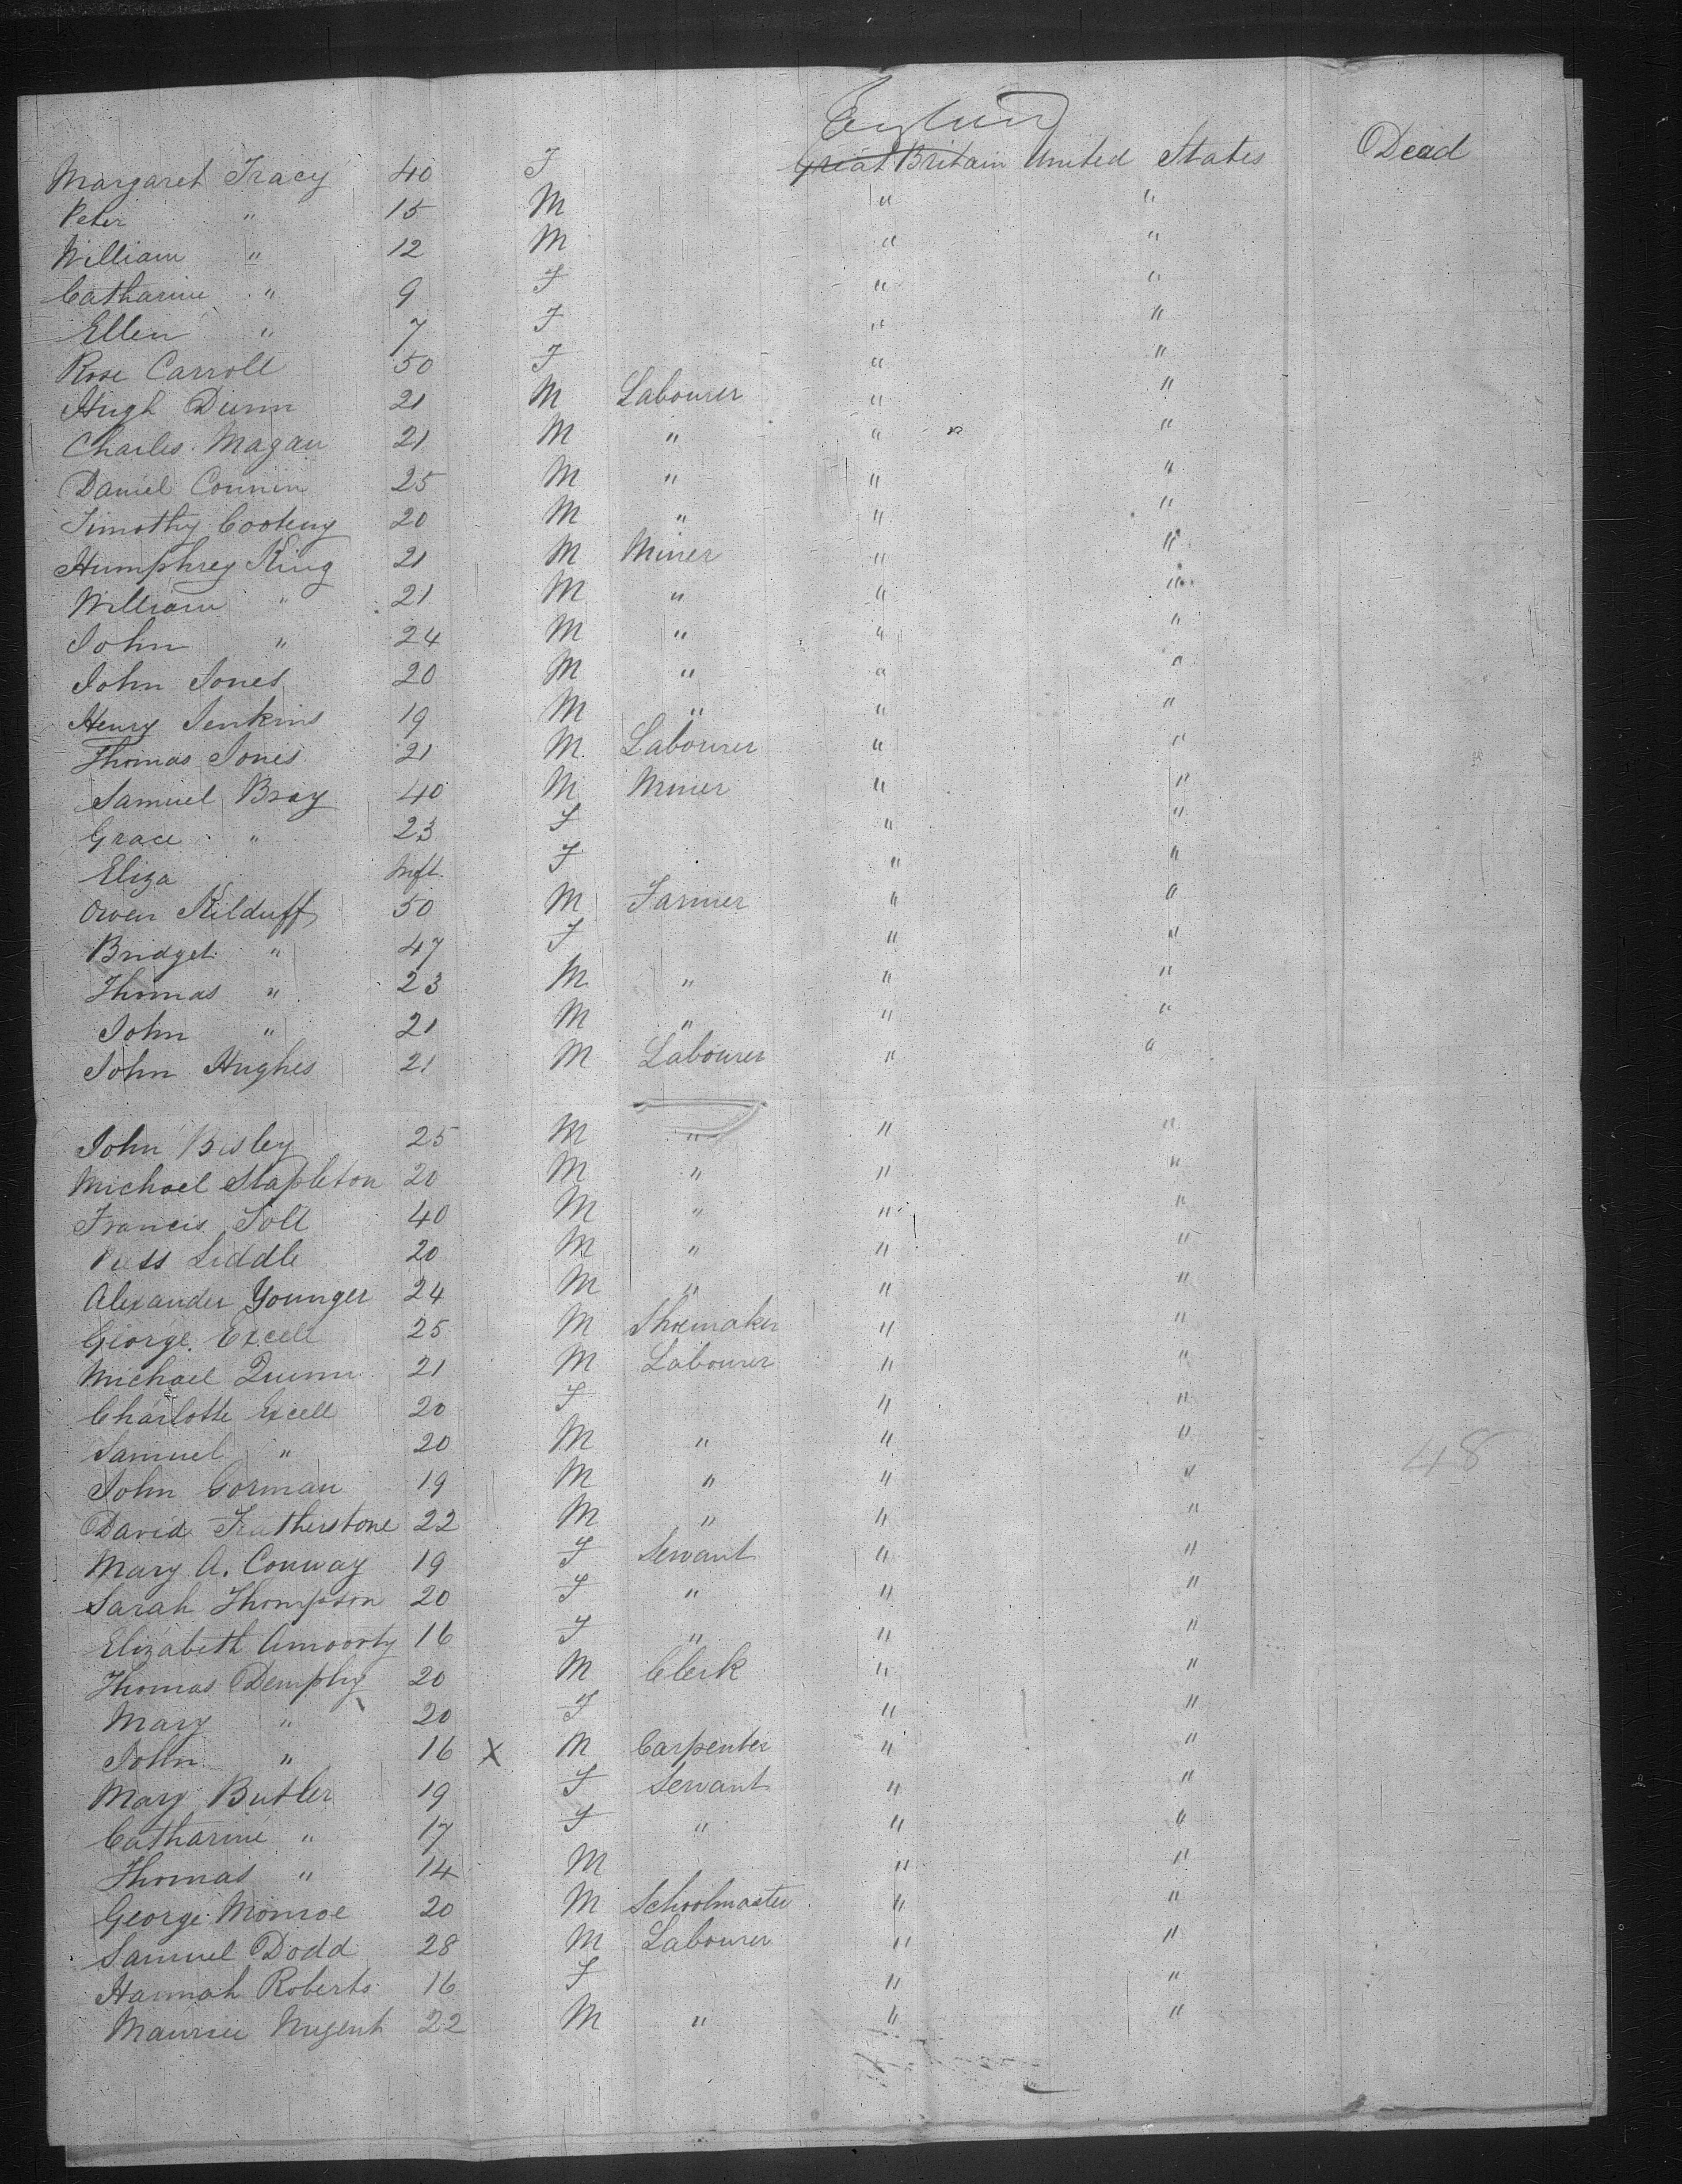 England
Margaret Tracy 40 F Great Britain United States Dead
Peter " 15 M " "
William " 12 M " "
Catharine " 9 F " "
Ellen " 7 F " "
Rose Carroll 50 F " "
Hugh Dunn 21 M Labourer " "
Charles Magan 21 M " " "
Daniel Connin 25 M " " "
Timothy 20 M " " "
Humphrey King 21 M Miner " "
William " 21 M " " "
John " 24 M " " "
John Jones 20 M " " "
Henry Jenkins 19 M " " "
Thomas Jones 21 M Labourer " "
Samuel Bray 40 M Miner " "
Grace " 23 F " "
Eliza Inft. F " "
Owen Kilduff 50 M Farmer " "
Bridget " 47 F " "
Thomas " 23 M " " "
John " 21 M " " "
John Hughes 21 M Labourer " "
John Bisley 25 M " " "
Michael Stapleton 20 M " " "
Francis 40 M " " "
Liddle 20 M " " "
Alexander Younger 24 M " " "
George Excell 25 M Shoemaker " "
Michael Quinn 21 M Labourer " "
Charlotte Excell 20 F " "
Samuel " 20 M " " "
48
John Gorman 19 M " " "
David Featherstone 22 M " " "
Mary A. Conway 19 F Servant " "
Sarah Thompson 20 F " " "
Elizabeth 16 F " " "
Thomas Demphy 20 M Clerk " "
Mary " 20 F " "
John " 16 X M Carpenter " "
Mary Butler 19 F Servant " "
Catharine " 17 F " " "
Thomas " 14 M " "
George Monroe 20 M Schoolmaster " "
Samuel Dodd 28 M Labourer " "
Hannah Roberts 16 F " "
Maurice Nugent 22 M " " "